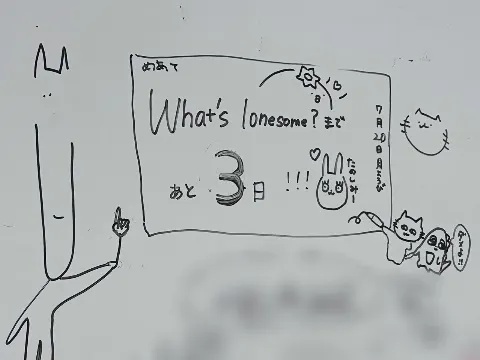 めあて
What's lonesome? まで
あと 3 日 !!!
7月20日月よう日
たのしみー